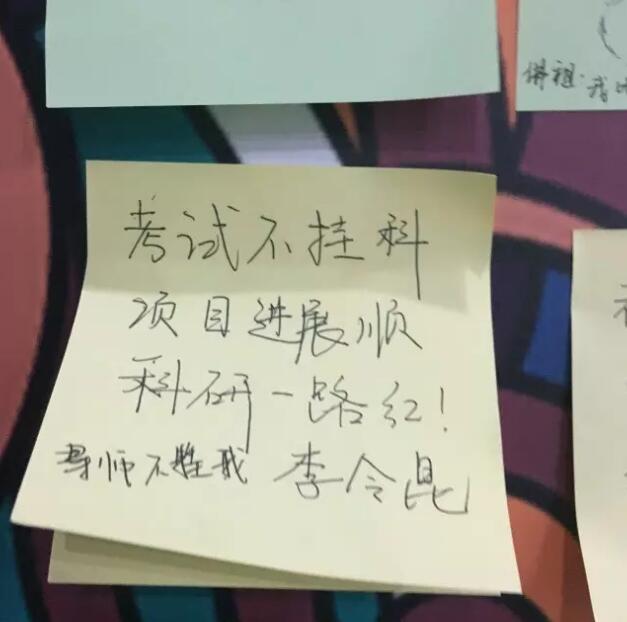 佛祖:我
考试不挂科
项目进展顺
科研一路红!
导师不难我 李令昆